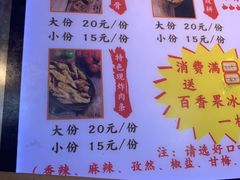 骨
拼
大份 20元/份
小份 15元/份
大份 20元/份
小份 15元/份
特色现炸肉条
大份 20元/份
小份 15元/份
消费满
送
百香果冰
一杯
注：请选好口
（香辣、麻辣、孜然、椒盐、甘梅、